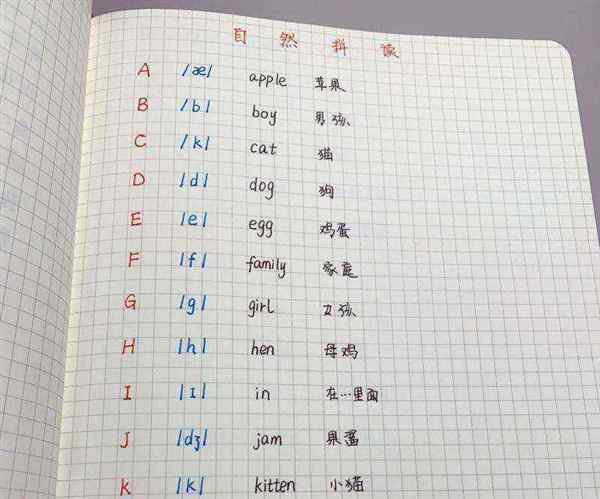 自然拼读
A /æ/ apple 苹果
B /b/ boy 男孩
C /k/ cat 猫
D /d/ dog 狗
E /e/ egg 鸡蛋
F /f/ family 家庭
G /g/ girl 女孩
H /h/ hen 母鸡
I /ɪ/ in 在…里面
J /dʒ/ jam 果酱
K /k/ kitten 小猫